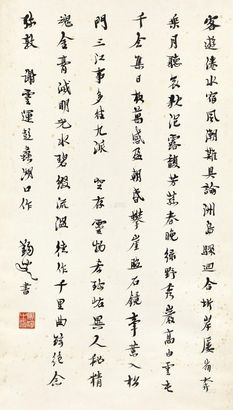 客遊倦水宿風潮難具論洲島驟迴合圻岸屢崩奔
乘月聽哀狖浥露馥芳蓀春晚綠野秀巖高白雲屯
千念集日夜萬感盈朝昏攀崖照石鏡牽葉入松
門三江事多往九派 空存靈物吝珍怪異人秘精
魂金膏滅明光水碧綴流溫徒作千里曲絃絕念
彌敦 謝靈運彭蠡湖口作 書